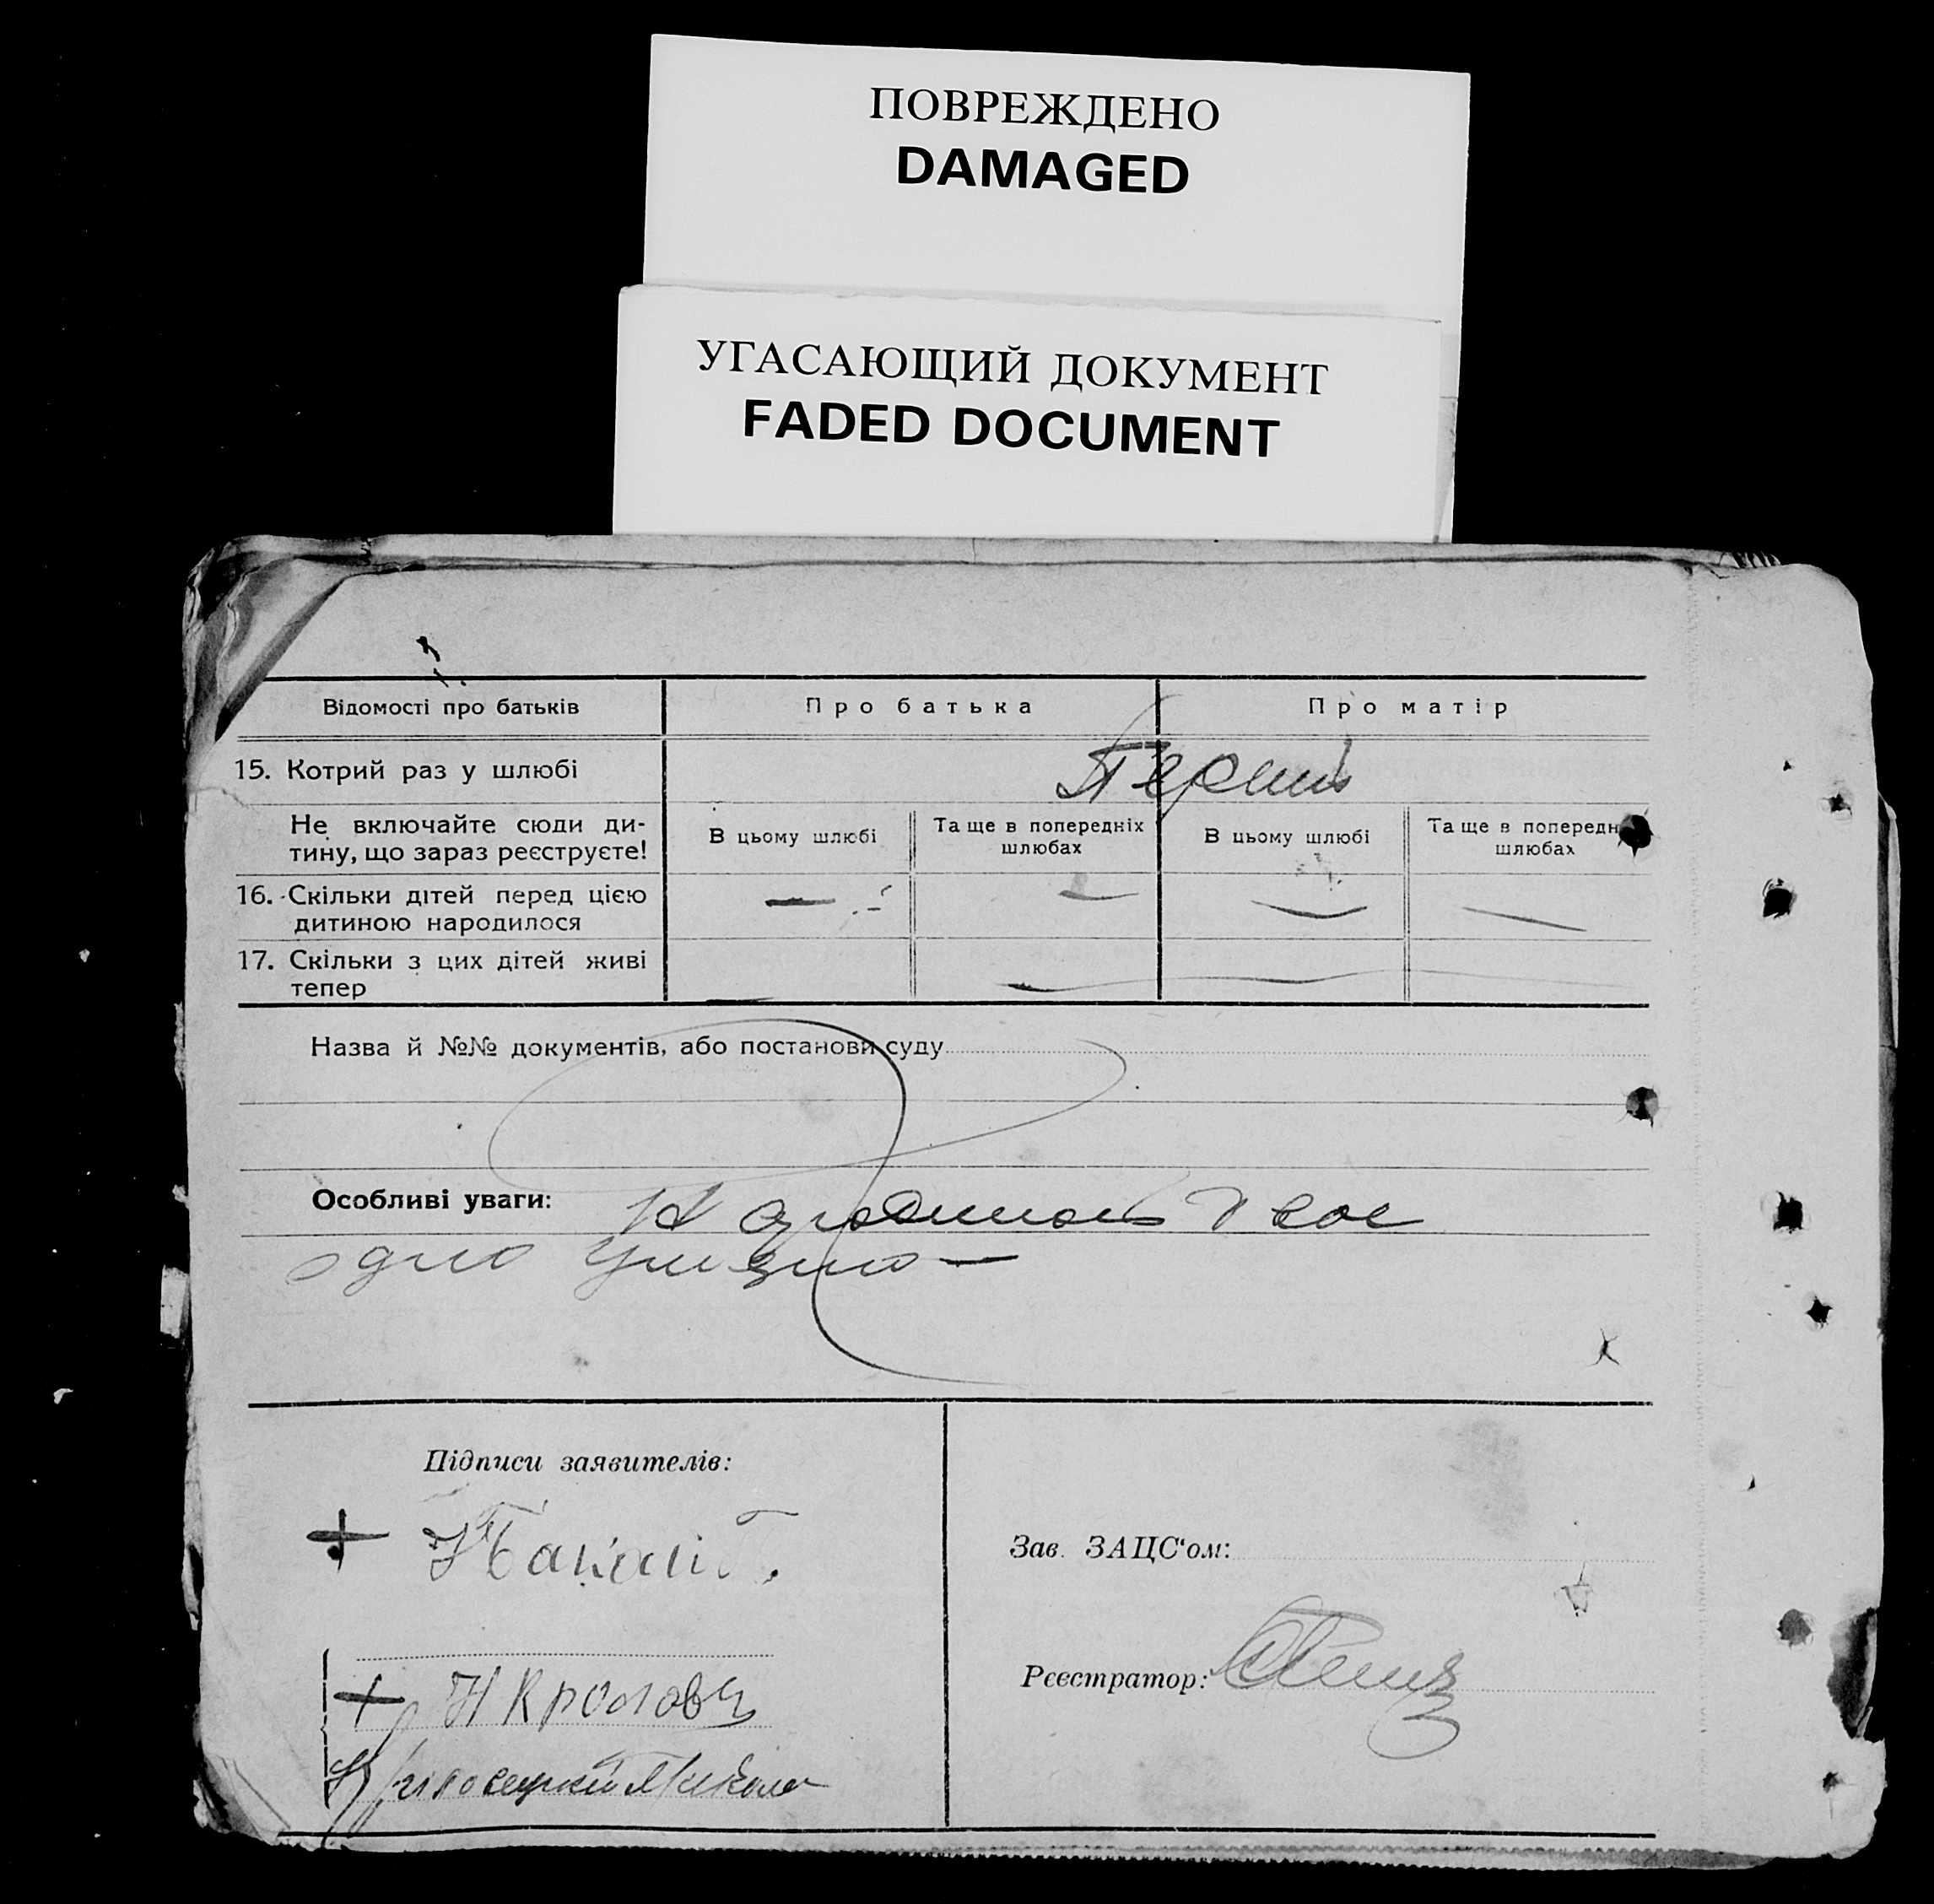 ПОВРЕЖДЕНО
DAMAGED
УГАСАЮЩИЙ ДОКУМЕНТ
FADED DOCUMENT
Відомості про батьків
Про батька
Про матір
15. Котрий раз у шлюбі
Перший
Не включайте сюди ди-
тину, що зараз реєструєте!
В цьому шлюбі
Та ще в попередніх
шлюбах
В цьому шлюбі
Та ще в попередн
шлюбах
16. Скільки дітей перед цією
дитиною народилося
17. Скільки з цих дітей живі
тепер
Назва й №№ документів, або постанови суду
Особливі уваги:
двоє
одно
Підписи заявителів:
Зав. ЗАЦС'ом:
Реєстратор:
Микола